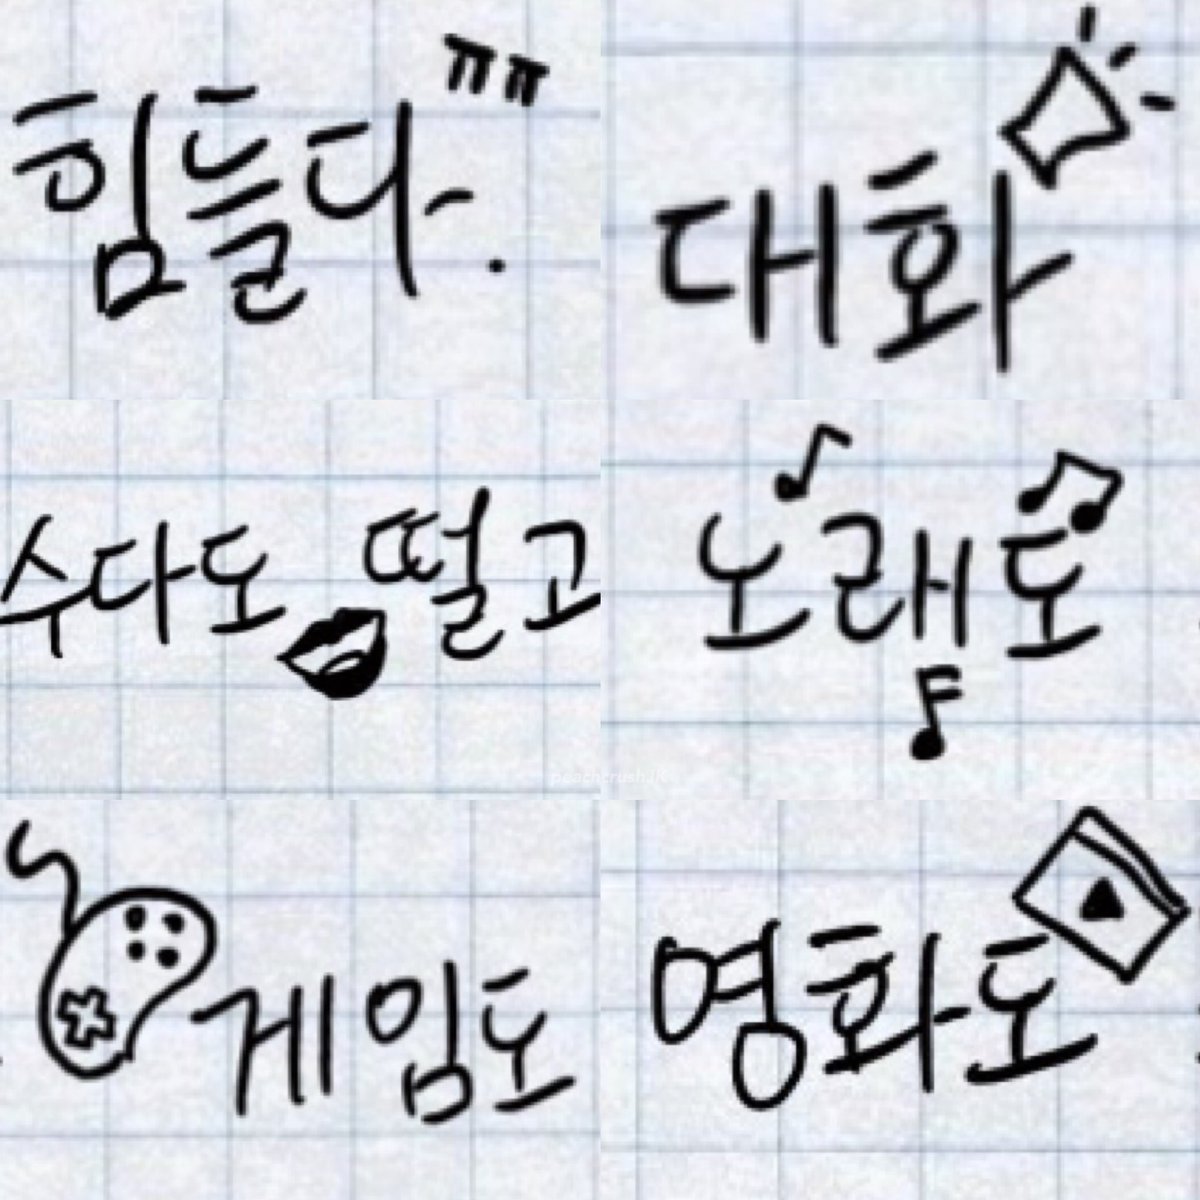 힘들다. ㅠㅠ
대화
수다도 떨고
노래도
peachcrush.JK
게임도
영화도